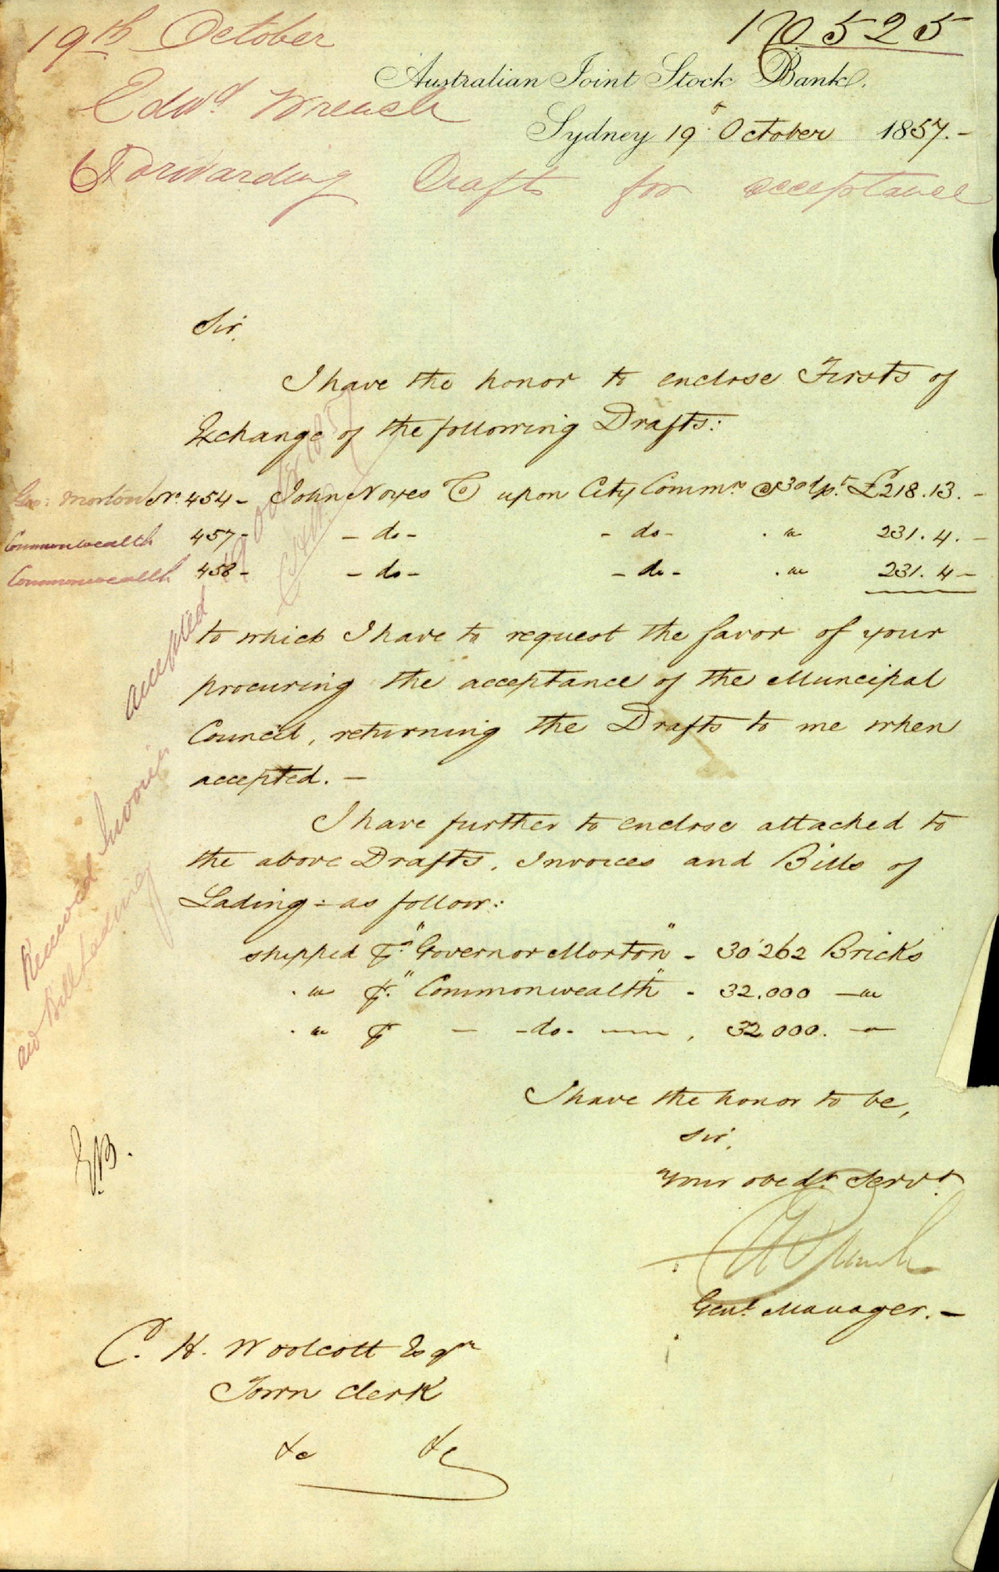 19th October
No 525
Australian Joint Stock Bank.
Edwd Wrench
Sydney 19th October 1857.-
Forwarding Drafts for acceptance
Sir,
I have the honor to enclose Firsts of
Exchange of the following Drafts:
Gov: Morton No. 454 - John Noyes upon City Commrs £218.13.-
Commonwealth 457 - - do - - do - " 231.4.-
Commonwealth 458 - - do - - do - " 231.4-
to which I have to request the favor of your
procuring the acceptance of the Muncipal
Council, returning the Drafts to me when
accepted. -
I have further to enclose attached to
the above Drafts, Invoices and Bills of
Lading - as follow:
shipped pr "Governor Morton" - 30262 Bricks
" pr "Commonwealth" - 32.000 - "
" pr - - do - 32.000. - "
I have the honor to be,
Sir,
Your obedt Servt
Genl Manager. -
C. H. Woolcott Esqre
Town Clerk
&c &c
accepted
Received Invoices
and Bill Lading